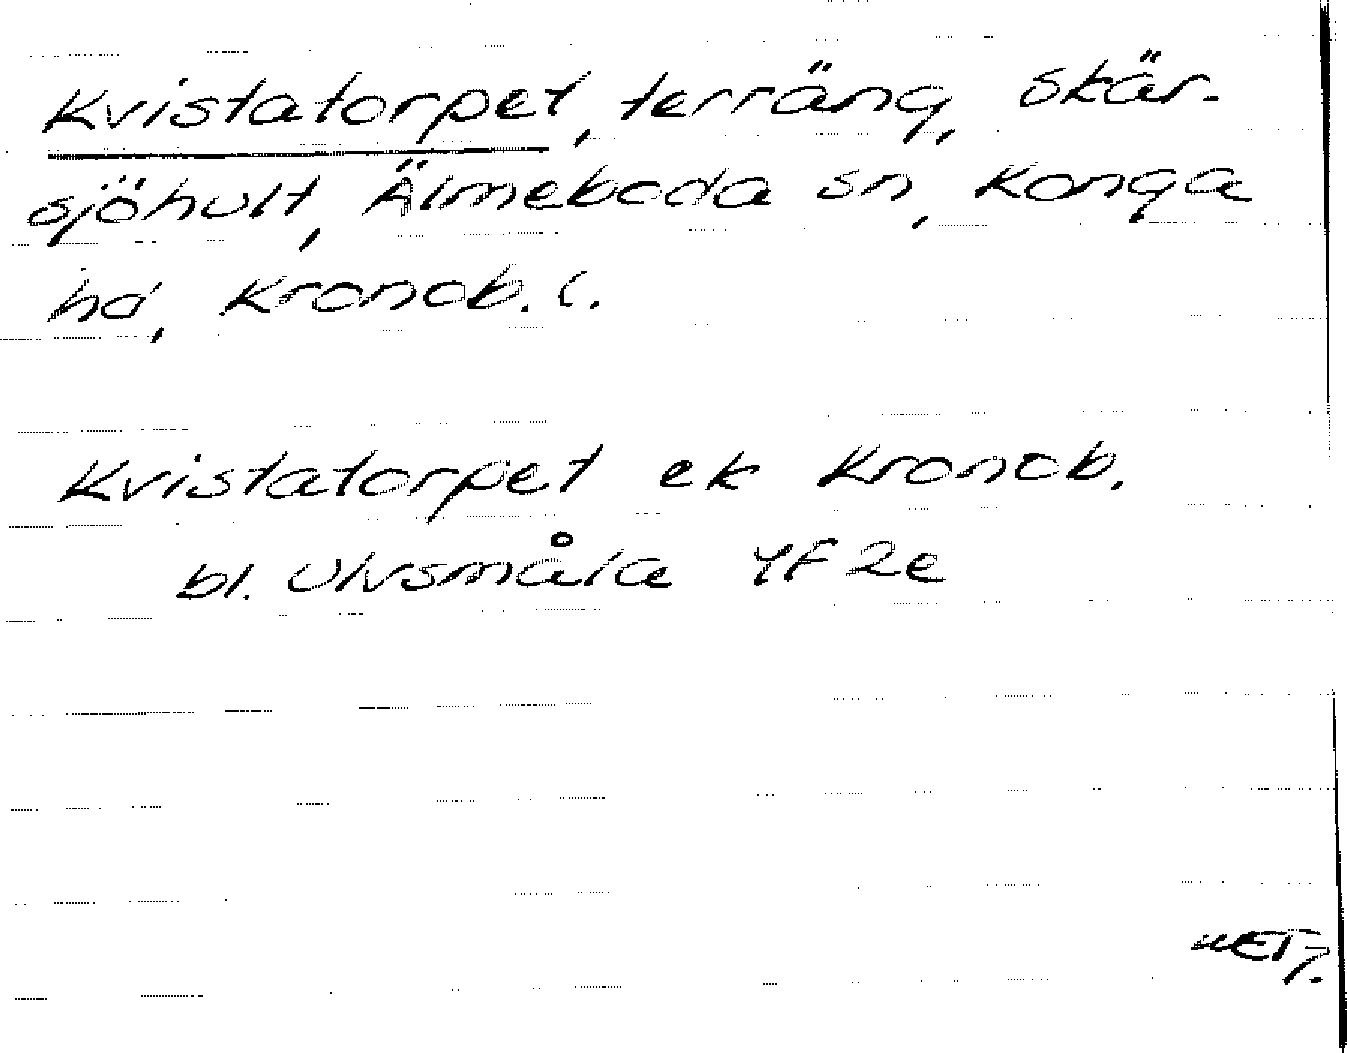 Kvistatorpet, terräng, Skär-
sjöhult, Älmeboda sn, Konga
hd, Kronob. l.
Kvistatorpet ek Kronob.
bl. Ulvsmåla 4F 2e